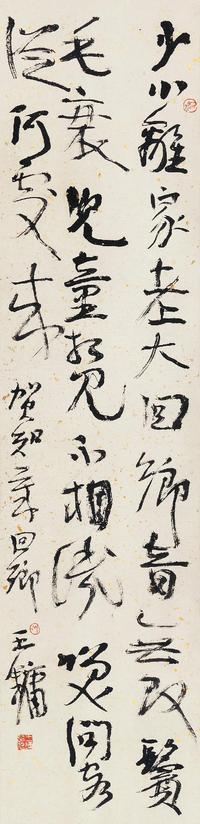 少小離家老大回鄉音無改鬢
毛衰兒童相見不相識咲問客
從何處來 賀知章回鄉 王鏞